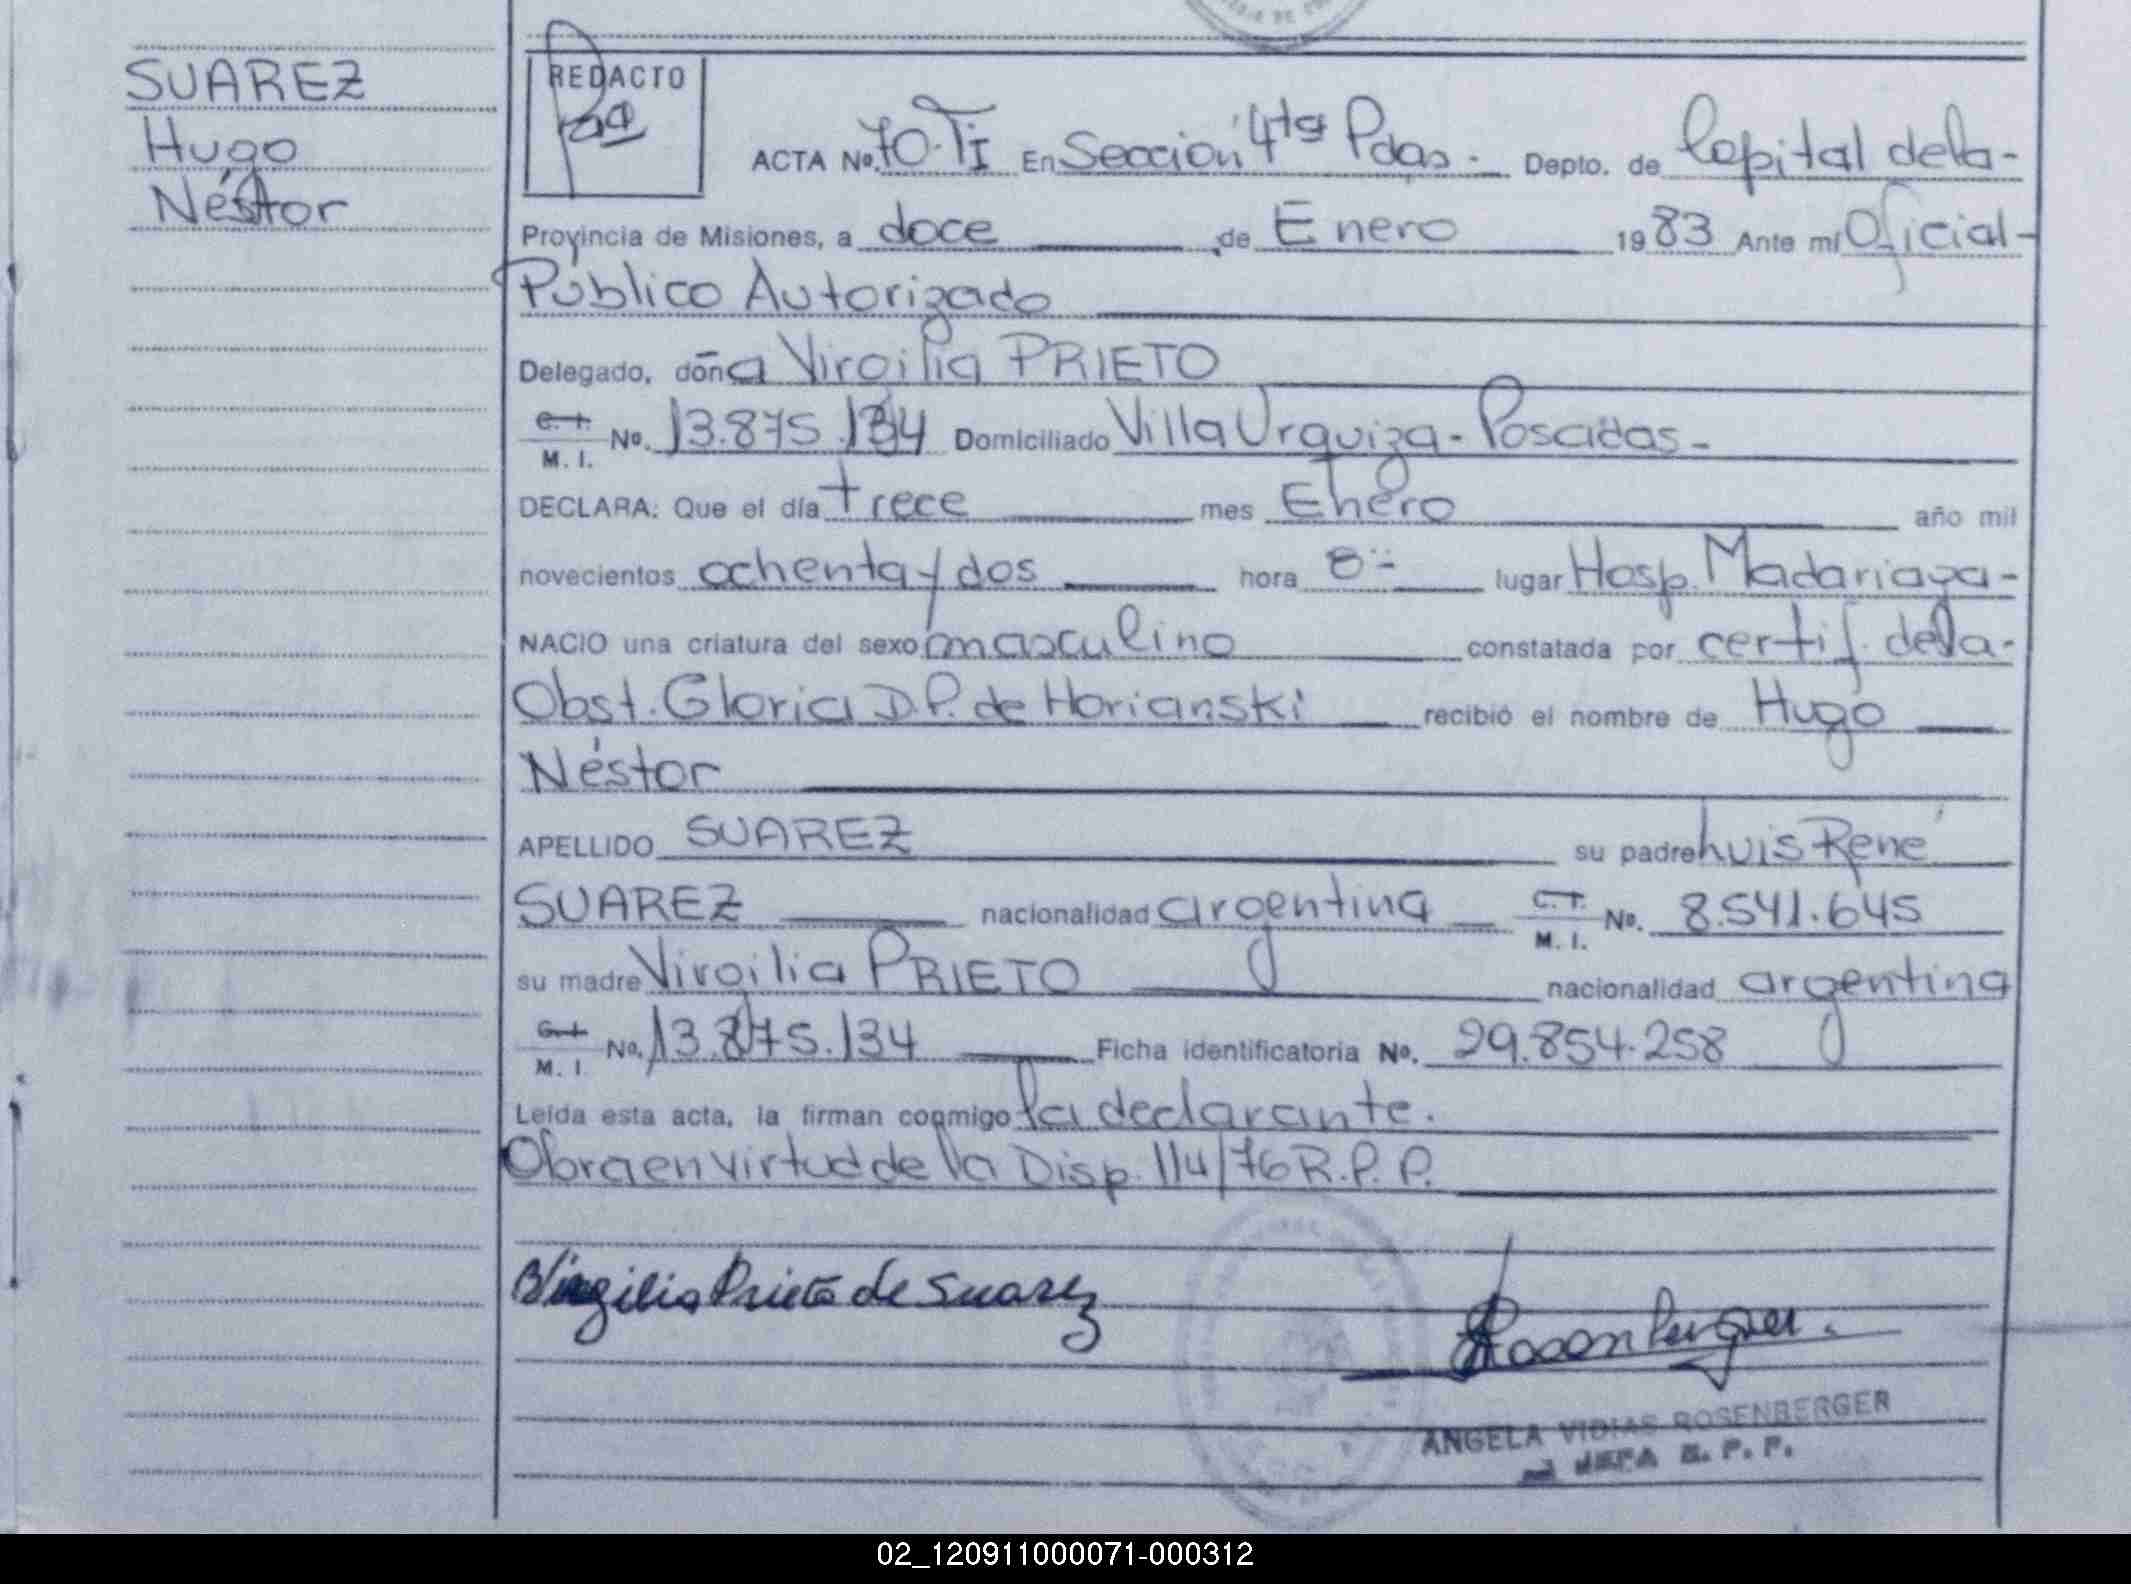 SUAREZ
Hugo
Néstor
REDACTO
ACTA No. 70.TI En Sección 4ta Pdas. Depto. de Capital de la-
Provincia de Misiones, a doce de Enero 1983 Ante mí Oficial-
Público Autorizado
Delegado, doña Virgilia PRIETO
C. I.
M. I. No. 13.875.134 Domiciliado Villa Urquiza - Posadas-
DECLARA: Que el día trece mes Enero año mil
novecientos ochenta y dos hora 8- lugar Hosp. Madariaga-
NACIO una criatura del sexo masculino constatada por certif. de la-
Obst. Gloria D.P. de Horianski recibió el nombre de Hugo
Néstor
APELLIDO SUAREZ su padre Luis René
SUAREZ nacionalidad argentina C. I.
M. I. No. 8.541.645
su madre Virgilia PRIETO nacionalidad argentina
C. I.
M. I. No. 13.875.134 Ficha identificatoria No. 29.854.258
Leída esta acta, la firman conmigo la declarante.
Obra en virtud de la Disp. 114/76 R.P.P.
Virgilia Prieto de Suarez
Rosenberger
ANGELA VIDIAS ROSENBERGER
JEFA R. P. P.
02_120911000071-000312